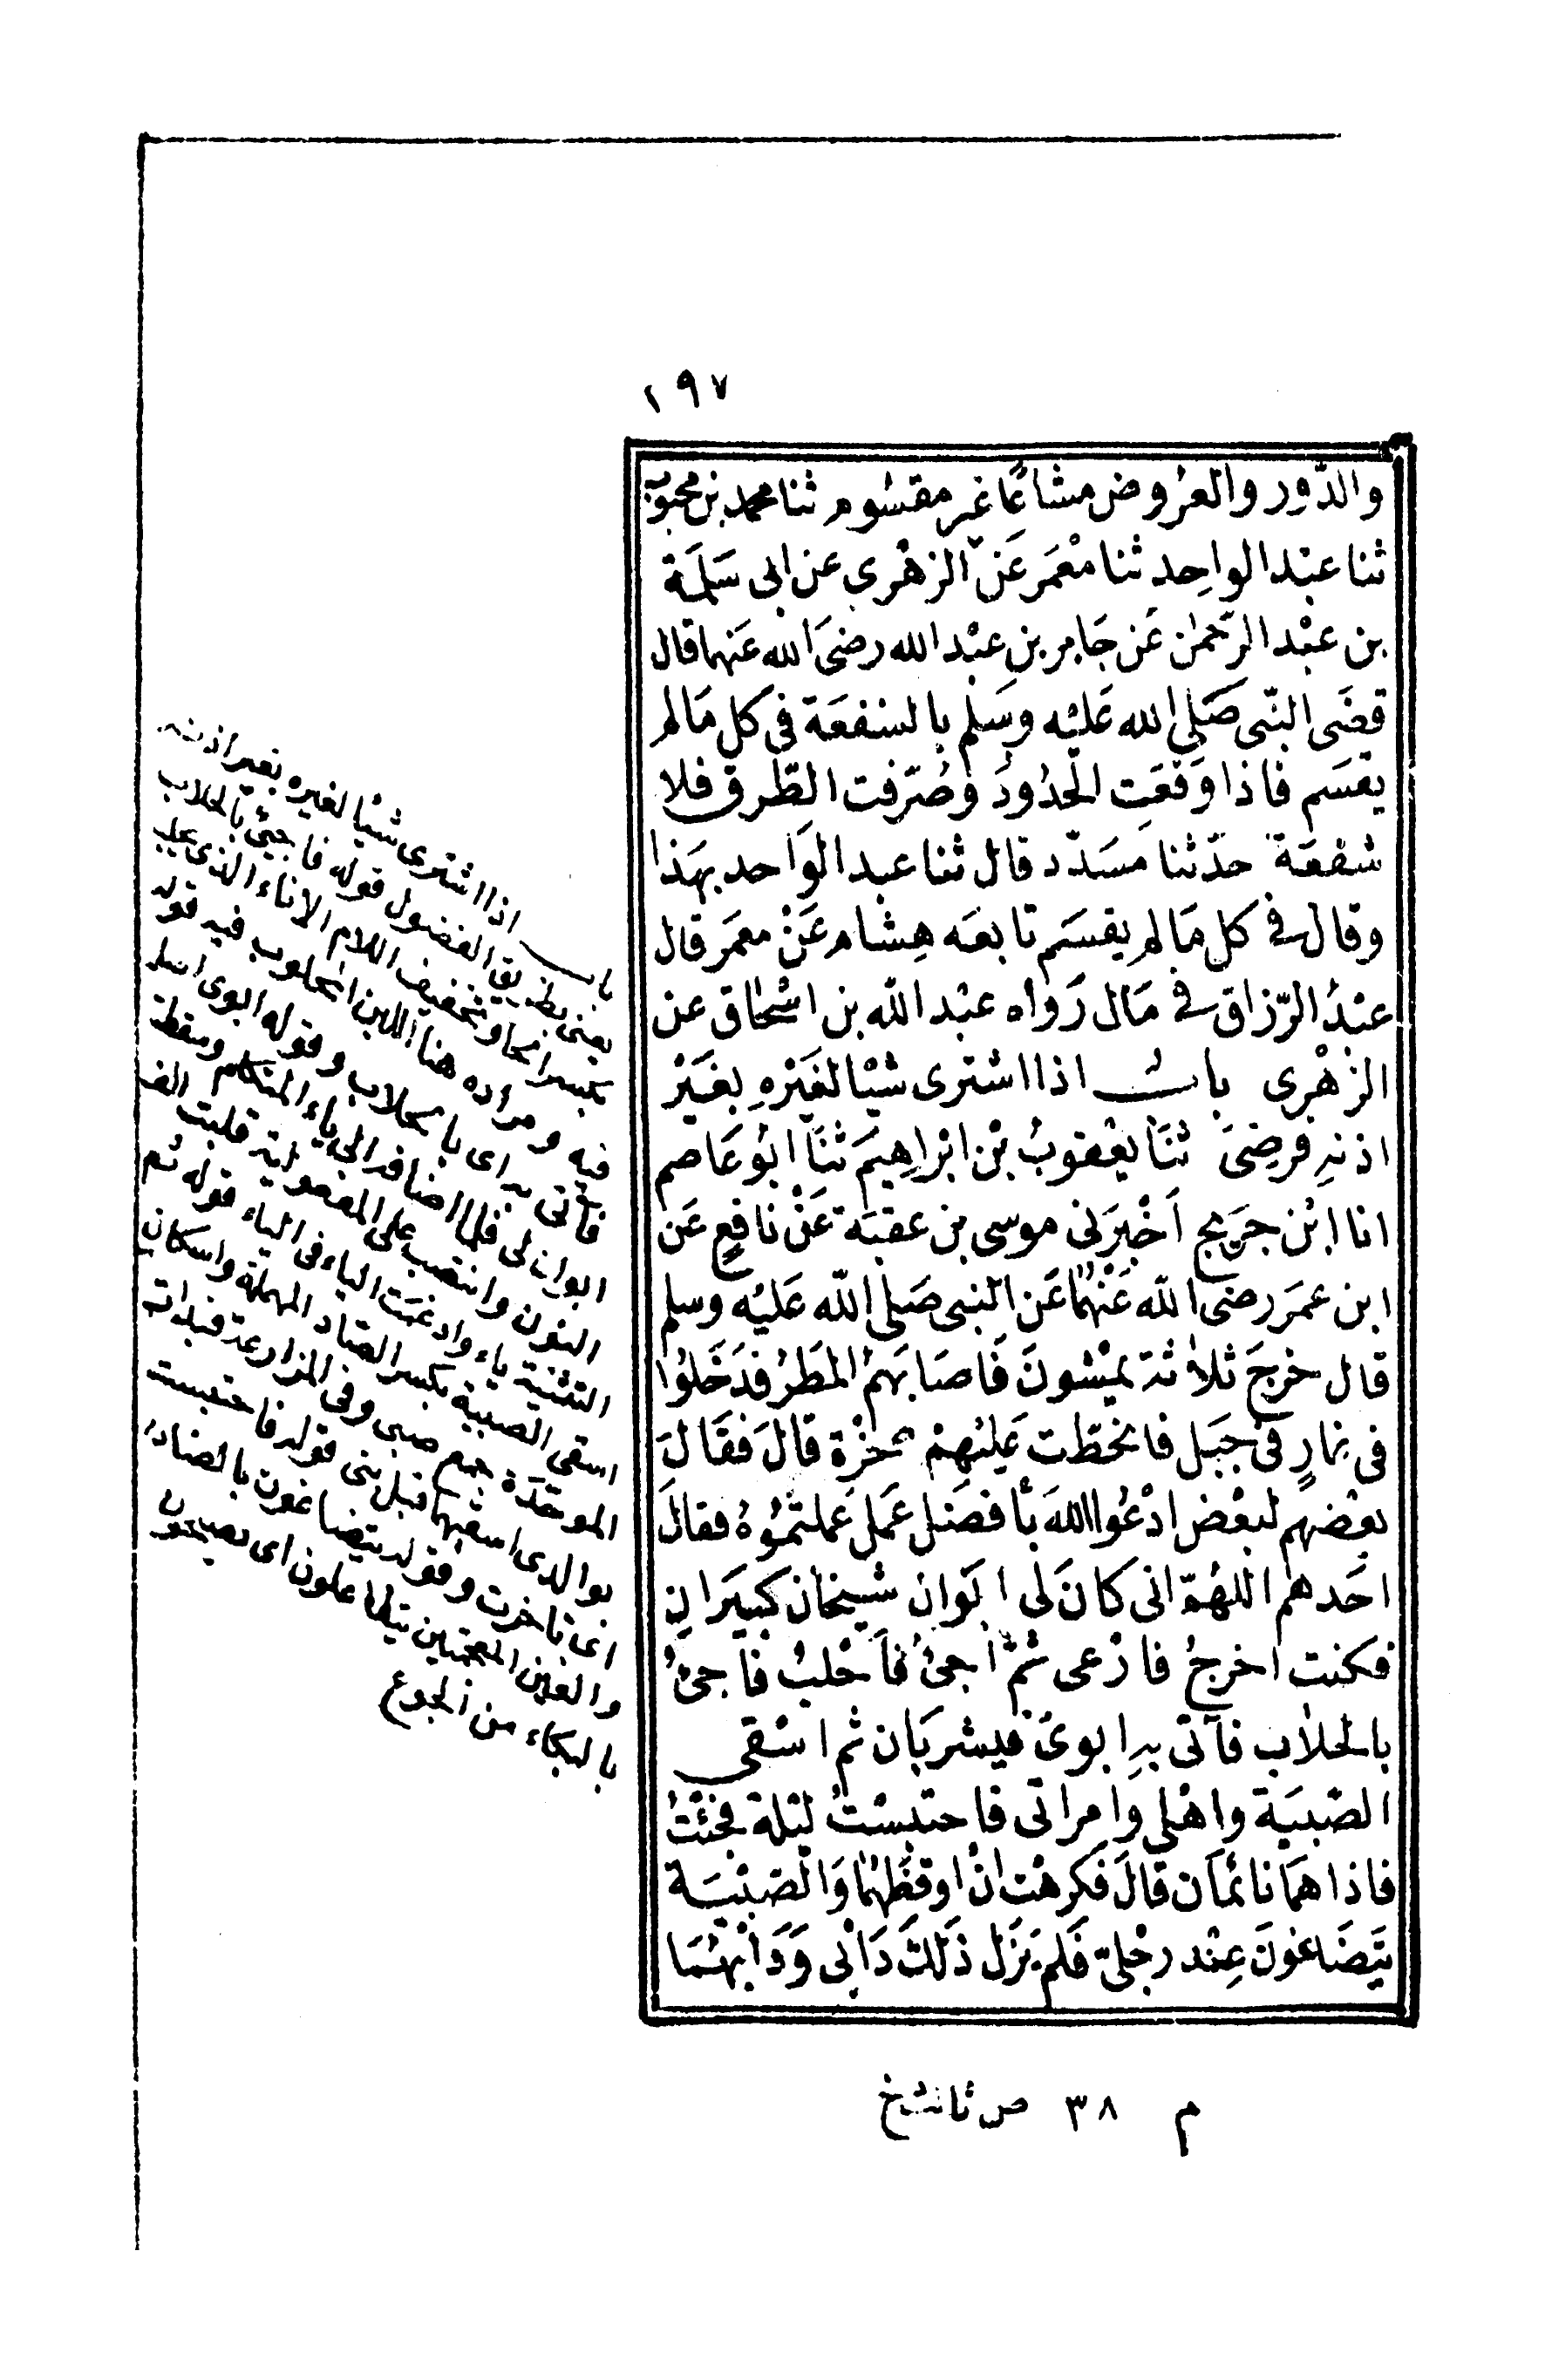 ١٩٧
والدّور والعُروض مشاعًا غير مقسُوم ثنا محمد بن محبوب
ثنا عبْد الواحِد ثنا مَعْمَر عَن الزهْري عن ابى سَلَمَة
بن عبْد الرّحمٰن عَن جَابر بنِ عبْد الله رضىَ الله عَنهما قال
قضَى النّبى صَلى الله عَليْه وسَلم بالشفعَة فى كل مَا لم
يقسَم فاذا وَقعَتِ الحُدُودُ وَصُرّفت الطّرق فلا
شفعَة حدّثنا مسَدّد قال ثنا عبد الوَاحد بهَذا
وقال فى كل مَا لم يقسَم تابعَه هِشام عَنْ معمَر قال
عبْدُ الرّزاق فى مَال رَوَاه عبْد الله بن اسْحٰاق عن
الزهْرى باب اذا اشترى شيْئا لغيَرْهِ بغيَرْ
اذنهِ فرضِىَ ثنَا يعْقوبُ بْن ابْراهِيمَ ثنَا ابُو عَاصم
انا ابْن جرَيج اَخْبرَنى موسى بن عقبَة عَنْ نافِعٍ عَن
ابن عمَر رضىَ الله عَنْهُمَا عَن النبى صَلى الله عَليْه وسلم
قال خرجَ ثلاٰثة يمْشونَ فَاصَابَهمُ المَطَرُ فدَخَلوُا
فى غارٍ فى جَبَل فانحطّت عَليْهِمْ صَخْرَة قالَ فقَالَ
بعْضهم لبعْض ادْعُوا اللهَ بأفضَل عَملَ عَملتمُوُهُ فقالَ
احَدهم اللهُمّ انى كانَ لى ابَوانِ شيخان كبيَرانِ
فكنت اخرجُ فارْعى ثمّ اجئُ فاَحْلبُ فاجئُ
بالحلاٰب فآتى بهِ ابوىّ فيشربَان ثم اسْقى
الصّبيَة واهْلى وَامراتى فاحتبسْتُ ليْلة فجئْتُ
فاذا همَا نائماَن قالَ فكرهْت انْ اوقظَهُمَا وَالصّبْيَة
يَتضَاغونَ عِنْد رجْلىّ فَلم يَزَل ذَلكَ دَأبى وَدَأبهُمَا
باب اذا اشترى شيئا لغيره بغير اذنه
يعنى بطريق الفضول قوله فاجيئ بالحلاب
بكسر الحا وتخفيف اللام الاناء الذى يحلب
فيه ومراده هنا اللبن المحلوب فيه قوله
فآتى به اى بالحلاب وقوله ابوى اصله
ابوان لى فلما اضافه الى ياء المتكلم وسقطت
النون وانتصب على المفعولية قلبت الف
التثنية ياء وادغمت الياء فى الياء قوله ثم
اسقى الصبية بكسر الصاد المهملة واسكان
الموحّدة جمع صبى وفى المزارعة فبدات
بوالدى اسقيهما قبل بنى قوله فاحتبست
اى تاخرت وقوله يتضاغون بالضاد
والغين المعجمتين يتفاعلون اى يصيحون
بالبكاء من الجوع
م ٣٨ ص ثانى خ